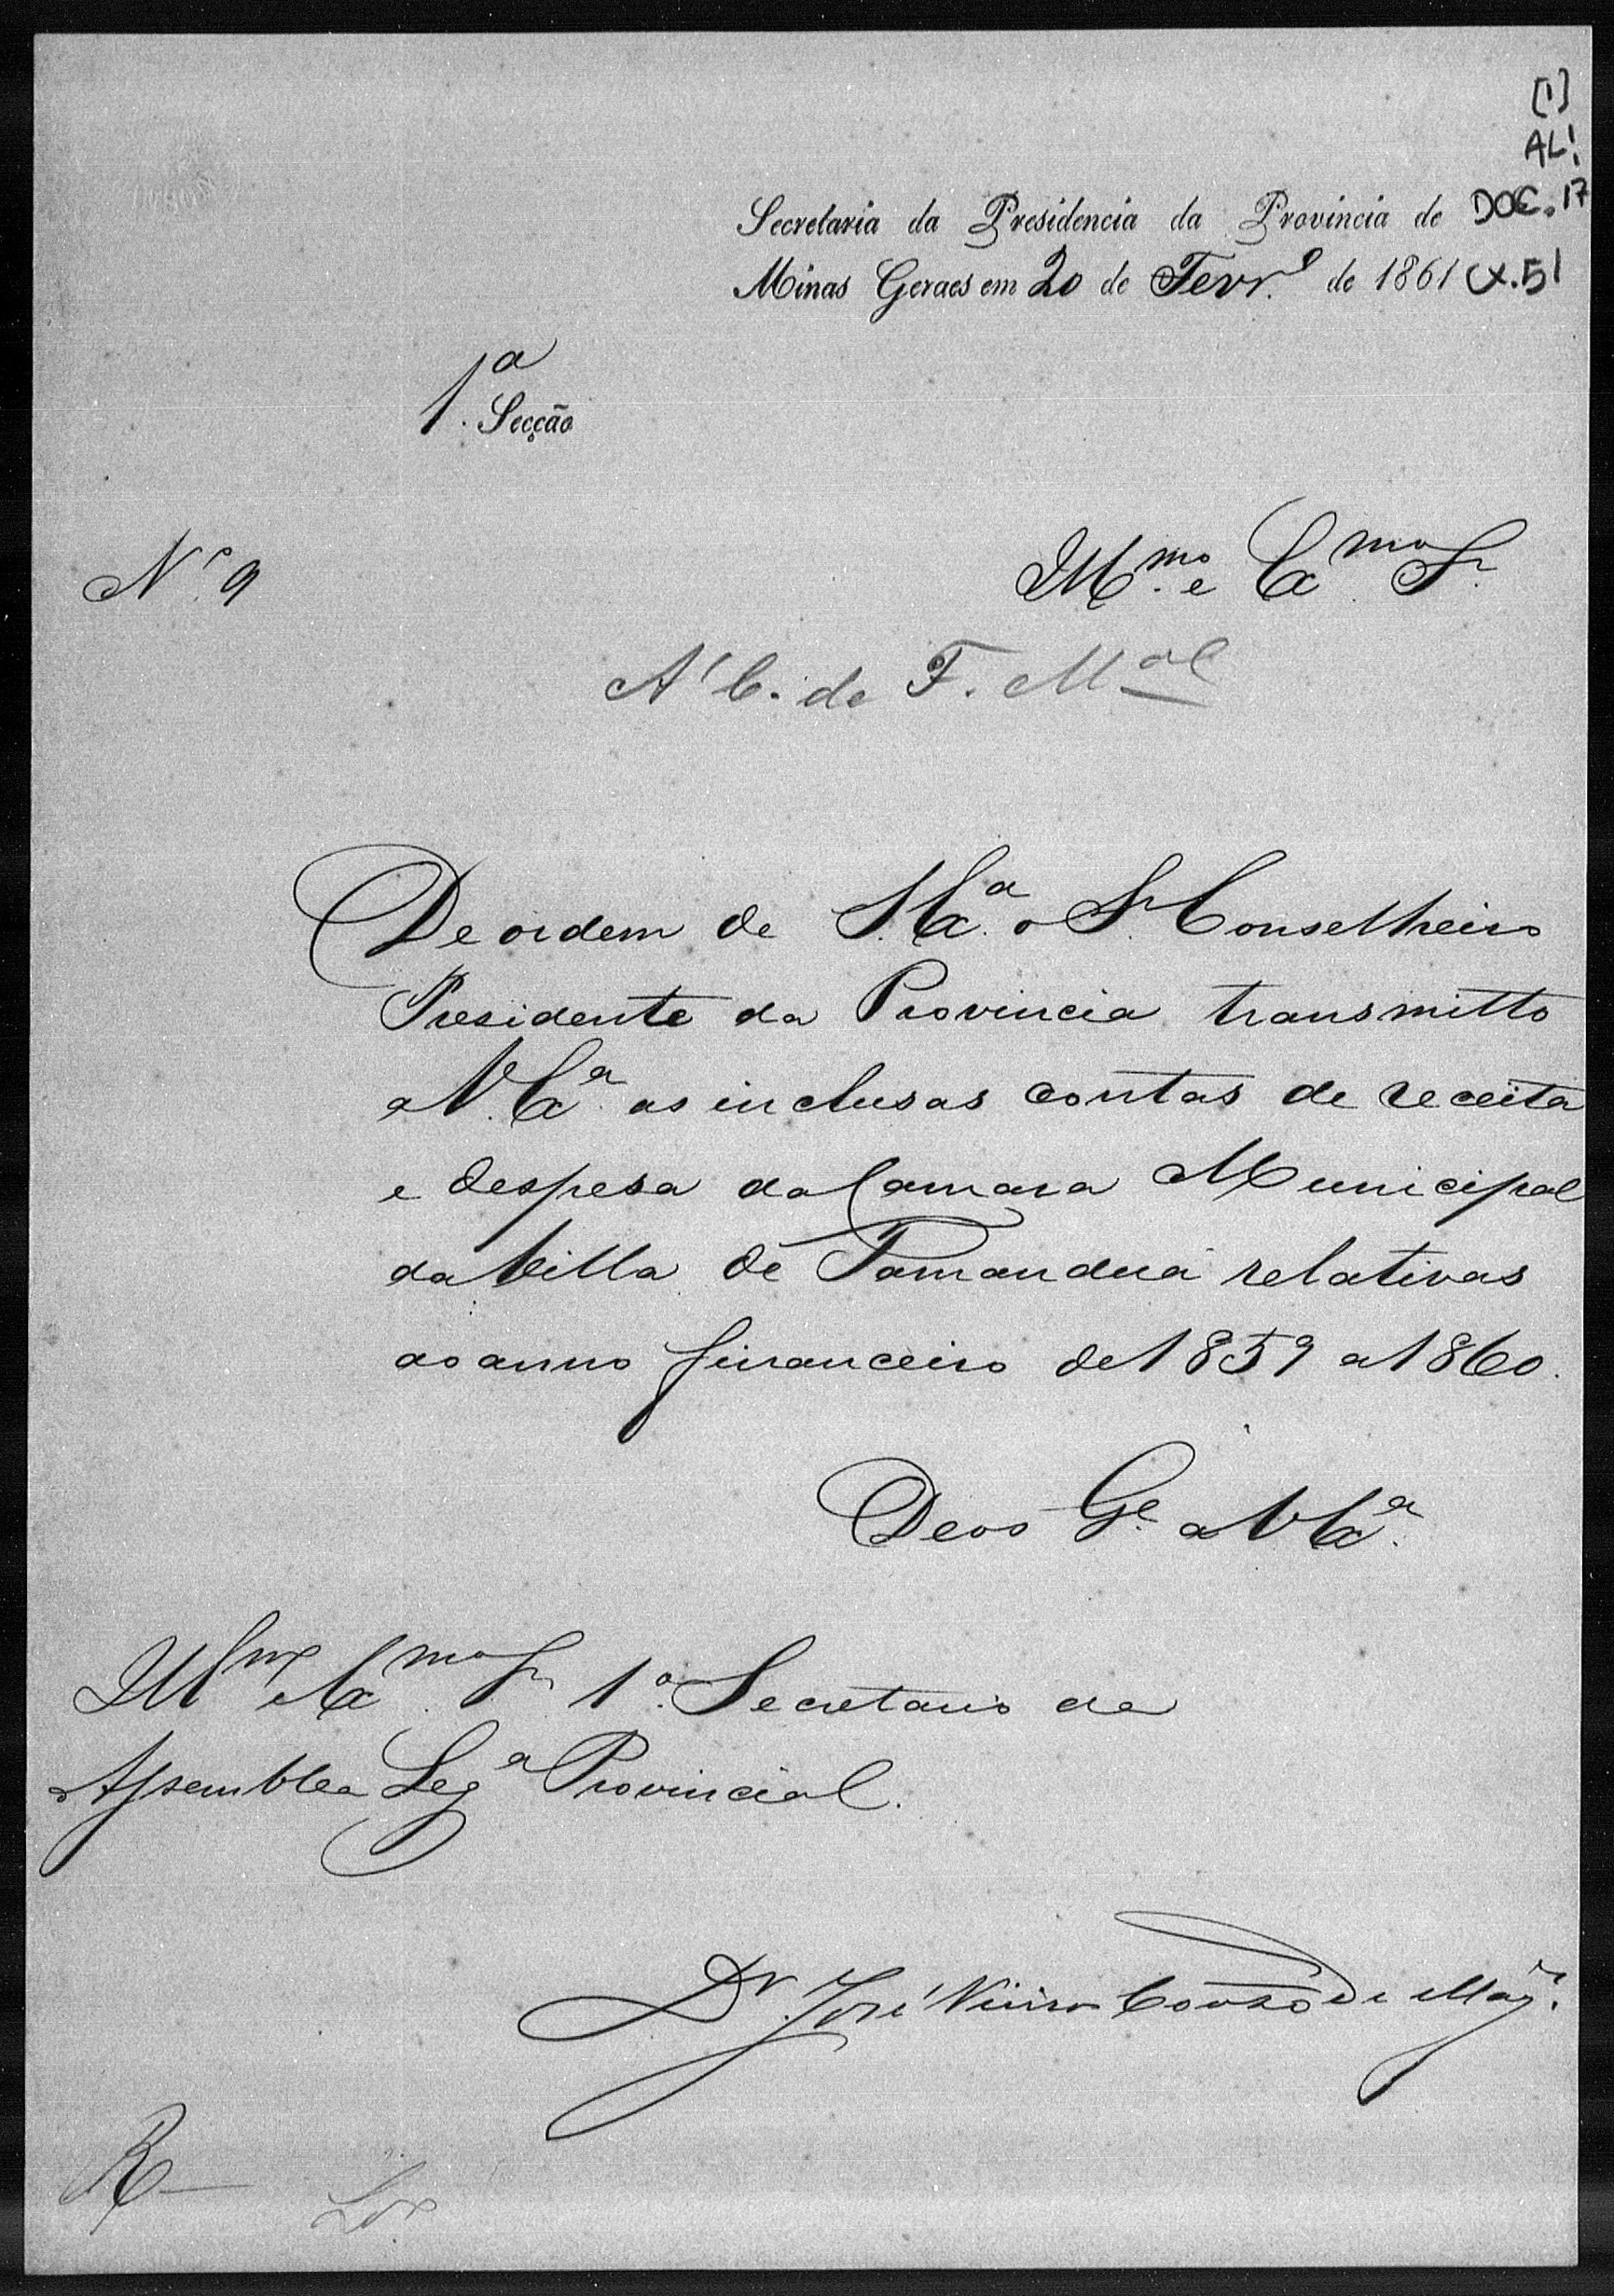 [1]
AL!
DOC. 17
Secretaria da Presidencia da Provincia de
Minas Geraes em 20 de Fevr.º de 1861 CX. 51
1.ª Secção
N.º 9
Illmº. e Exmº. Sr.
A' C. de F. Mal
De ordem de S. Exª. o Sr. Conselheiro
Presidente da Provincia transmitto
a V. Exª. as inclusas contas de receita
e despesa da Camara Municipal
da Villa de Tamanduá relativas
ao anno financeiro de 1859 a 1860.
Deos Ge. a V Exª.
Illmº e Exmº. Sr. 1º. Secretario da
Assemblea Legª Provincial.
Dr. José Vieira Couto de Mags.
R